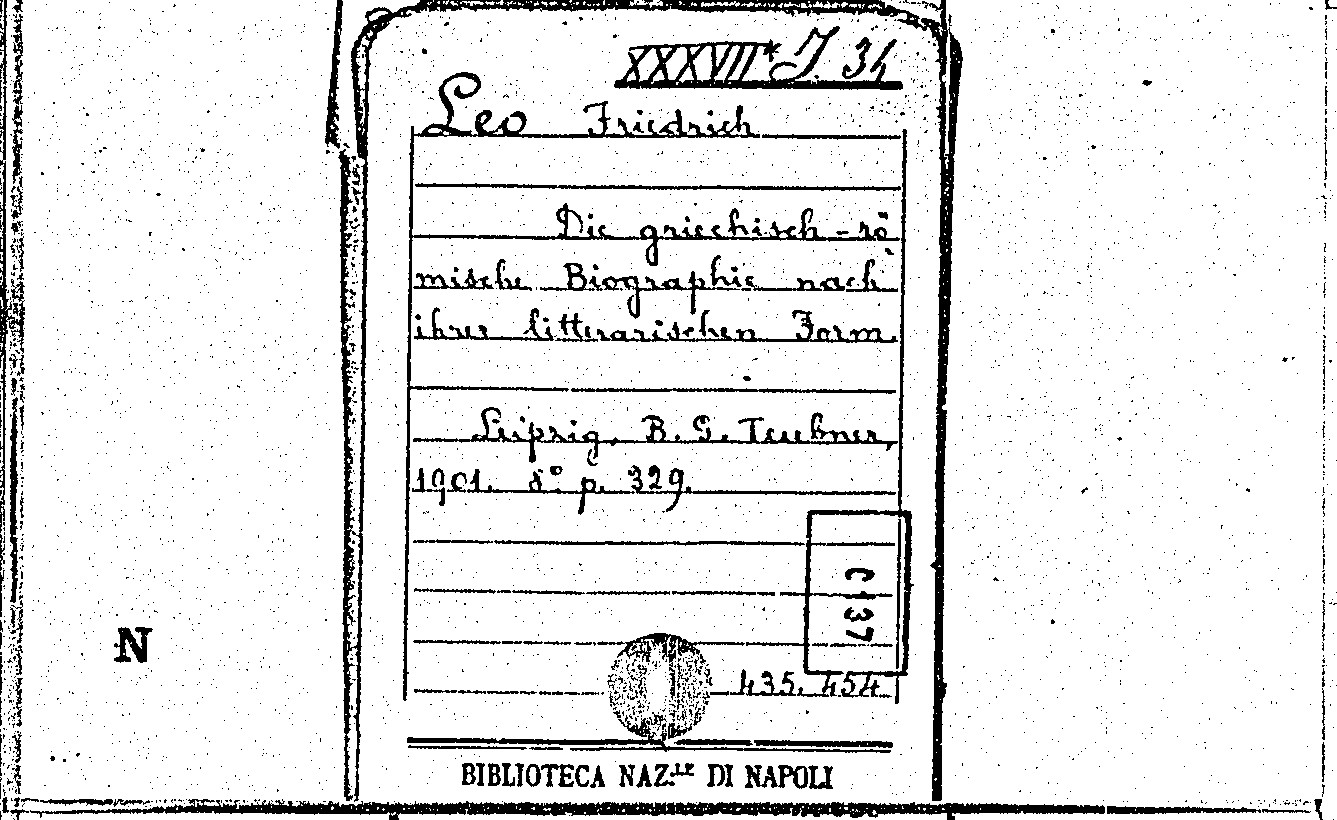 XXXVII* J. 34
Leo Friedrich
Die griechisch-rö
mische Biographie nach
ihrer litterarischen Form.
Leipzig, B. G. Teubner,
1901. 8° p. 329.
C 137
N
435. 454
BIBLIOTECA NAZ.LE DI NAPOLI